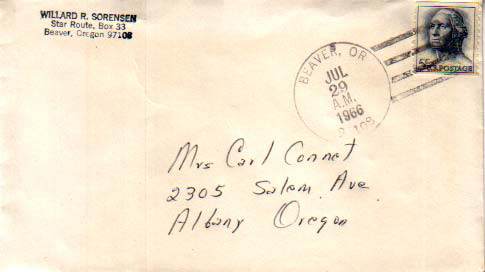 WILLARD R. SORENSEN
Star Route, Box 33
Beaver, Oregon 97108
BEAVER, OR
JUL
29
A.M.
1966
5¢ U.S. POSTAGE
Mrs Carl Connet
2305 Salem Ave
Albany Oregon